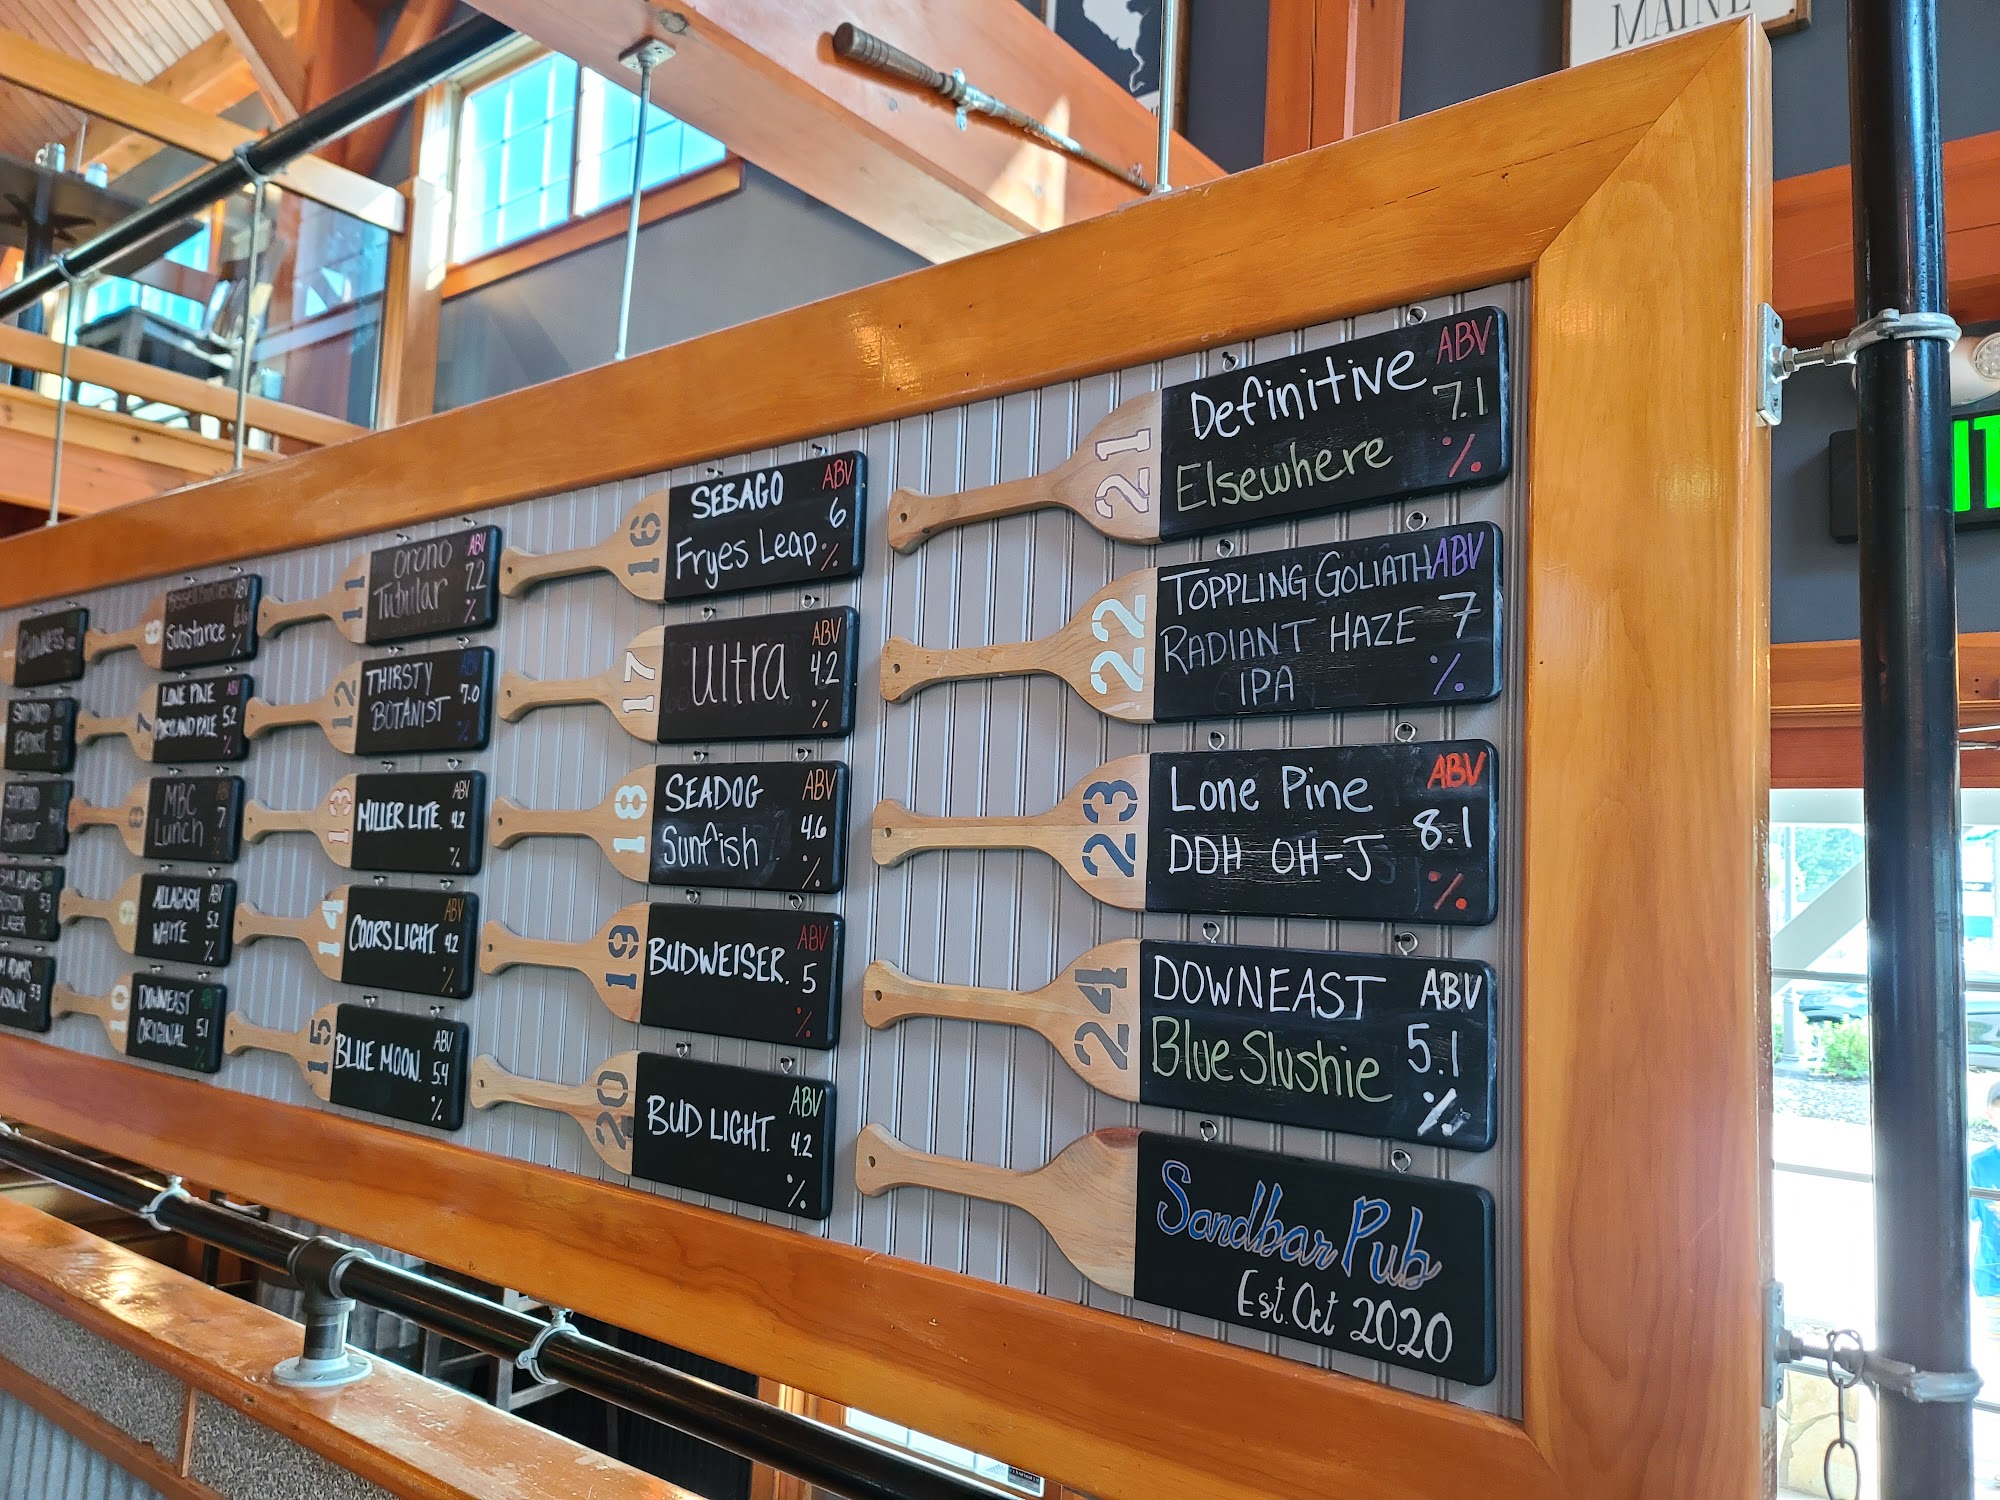 MAINE
GUINNESS
SHIPYARD
EXPORT
SHIPYARD
Summer
SAM ADAMS
BOSTON
LAGER
5.3
ADAMS
5.3
6
ABV
Substance
6.6
%
7
LONE PINE ABV
PORTLAND PALE 5.2
%
8
MBC
Lunch 7
9
ALLAGASH ABV
WHITE 5.2
%
10
DOWNEAST
ORIGINAL 5.1
%
11
Orono ABV
Tubular 7.2
%
12
THIRSTY ABV
BOTANIST 7.0
%
13
MILLER LITE. ABV
4.2
%
14
COORS LIGHT. ABV
4.2
%
15
BLUE MOON. ABV
5.4
%
16
SEBAGO ABV
Fryes Leap 6
%
17
Ultra ABV
4.2
%
18
SEADOG ABV
Sunfish 4.6
%
19
BUDWEISER. ABV
5
%
20
BUD LIGHT. ABV
4.2
%
21
Definitive ABV
Elsewhere 7.1
%
22
TOPPLING GOLIATH ABV
RADIANT HAZE 7
IPA %
23
Lone Pine ABV
DDH OH-J 8.1
%
24
DOWNEAST ABV
Blue Slushie 5.1
%
Sandbar Pub
Est. Oct 2020